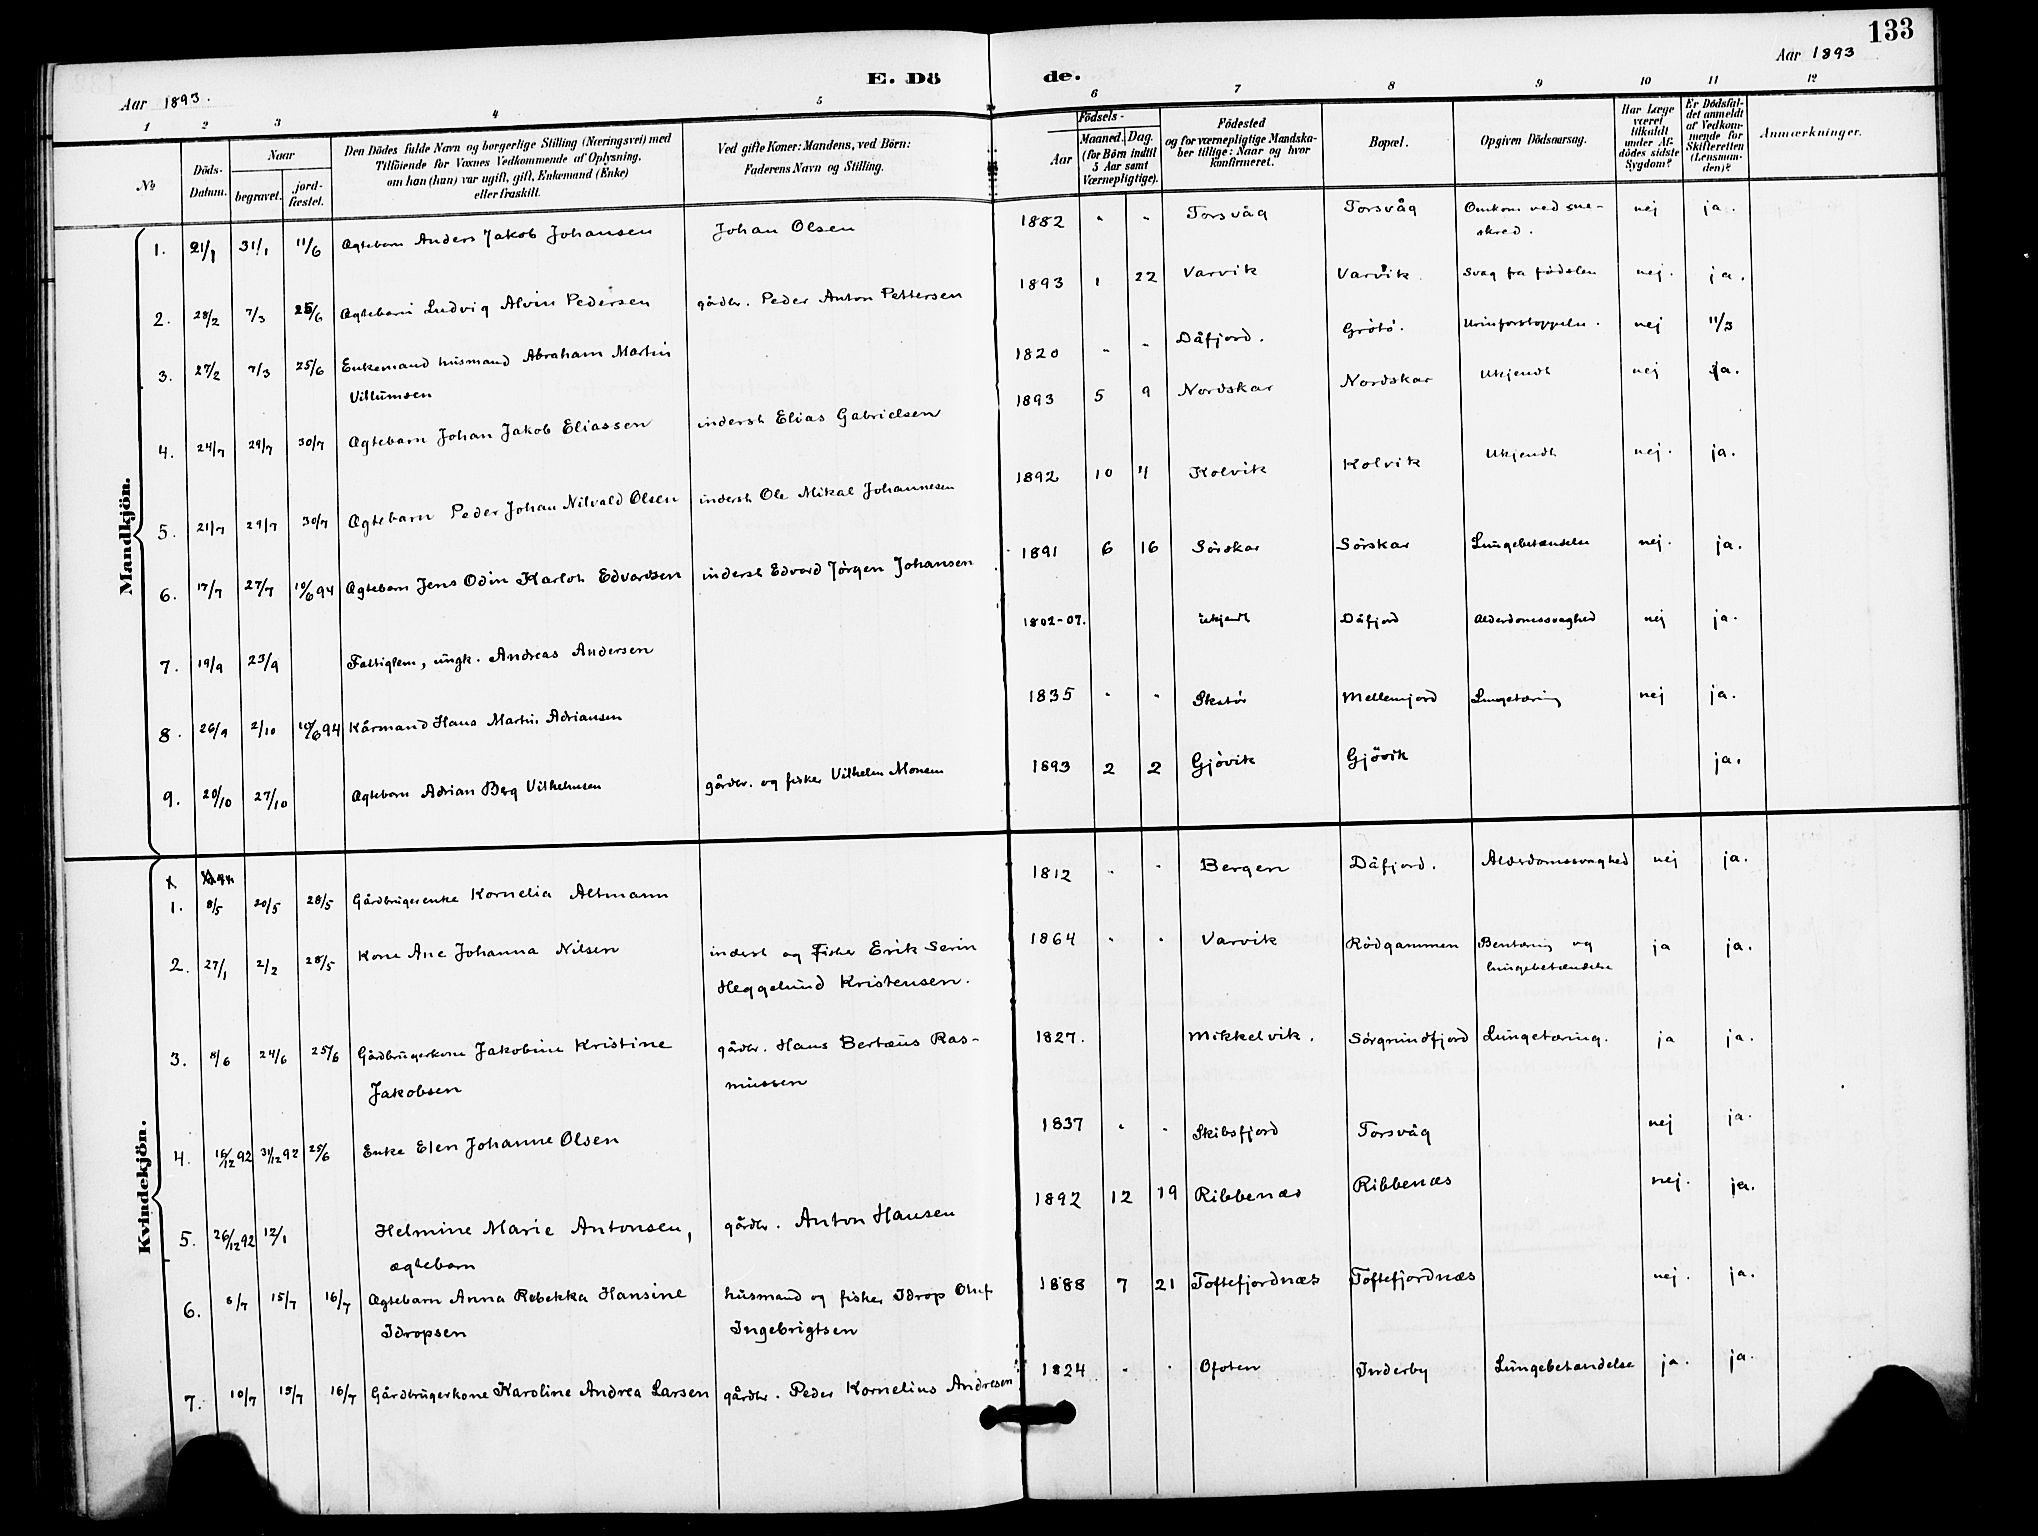 133
Aar 1893.
E. Dö
de.
Aar 1893
1 2 3 4 5 6 7 8 9 10 11 12
No
Döds-Datum.
Naar
begravet.
jord-fæstet.
Den Dödes fulde Navn og borgerlige Stilling (Næringsvei) med
Tilföiende for Voxnes Vedkommende af Oplysning,
om han (hun) var ugift, gift, Enkemand (Enke)
eller fraskilt.
Ved gifte Koner: Mandens, ved Börn:
Faderens Navn og Stilling.
Födsels-
Aar
Maaned.
Dag.
(for Börn indtil
5 Aar samt
Værnepligtige).
Födested
og for værnepligtige Mandska-
ber tillige: Naar og hvor
konfirmeret.
Bopæl.
Opgiven Dödsaarsag.
Har Læge
været
tilkaldt
under Af-
dödes sidste
Sygdom?
Er Dödsfal-
det anmeldt
af Vedkom-
mende for
Skifteretten
(Lensman-
den)?
Anmærkninger.
Mandkjön.
1. 21/1 31/1 11/6 Ægtebarn Anders Jakob Johansen Johan Olsen 1882 " " Torsvåg Torsvåg Omkom ved sne-
skred. nej ja.
2. 28/2 7/3 25/6 Ægtebarn Ludvig Alvin Pedersen gårdbr. Peder Anton Pettersen 1893 1 22 Varvik Varvik Svag fra födslen nej. ja.
3. 27/2 7/3 25/6 Enkemand husmand Abraham Martin
Villumsen 1820 " " Dåfjord. Grötö. Urinforstoppelse. nej 11/3
4. 24/7 29/7 30/7 Ægtebarn Johan Jakob Eliassen inderst Elias Gabrielsen 1893 5 9 Nordskar Nordskar Ukjendt nej ja.
5. 21/7 29/7 30/7 Ægtebarn Peder Johan Nilvald Olsen inderst Ole Mikal Johannesen 1892 10 4 Kolvik Kolvik Ukjendt nej. ja.
6. 17/7 27/7 10/6 94 Ægtebarn Jens Odin Karloh Edvardsen inderst Edvard Jörgen Johansen 1891 6 16 Sörskar Sörskar Lungebetændelse nej. ja.
7. 19/9 23/9 Fattiglem, ungk. Andreas Andersen 1802-07. ukjendt Dåfjord Alderdomssvaghed nej ja.
8. 26/9 2/10 10/6 94 Kårmand Hans Martin Adriansen 1835 " " Mellemjord Lungetæring nej ja.
9. 20/10 27/10 Ægtebarn Adrian Berg Vilhelmsen gårdbr. og fisker Vilhelm Monsen 1893 2 2 Gjövik Gjövik ja.
Kvindekjön.
1. 8/5 20/5 28/5 Gårdbrugerenke Kornelia Altmann 1812 " " Bergen Dåfjord. Alderdomssvaghed nej ja.
2. 27/1 2/2 28/5 Kone Ane Johanna Nilsen inderst og Fisker Erik Serin
Heggelund Kristensen. 1864 " " Varvik Rödgammen Bentæring og
lungebetændelse ja ja.
3. 8/6 24/6 25/6 Gårdbrugerkone Jakobine Kristine
Jakobsen gårdbr. Hans Bertæus Ras-
mussen 1827. Mikkelvik. Sörgrundfjord Lungetæring. ja ja.
4. 16/12 92 31/12 92 25/6 Enke Elen Johanne Olsen 1837 " " Skibsfjord Torsvåg nej ja.
5. 26/12 92 12/1 Helmine Marie Antonsen,
ægtebarn gårdbr. Anton Hansen 1892 12 19 Ribbenæs Ribbenæs nej. ja.
6. 8/7 15/7 16/7 Ægtebarn Anna Rebekka Hansine
Idropsen husmand og fisker Idrop Oluf
Ingebrigtsen 1888 7 21 Toftefjordnæs Toftefjordnæs nej. ja.
7. 10/7 15/7 16/7 Gårdbrugerkone Karoline Andrea Larsen gårdbr. Peder Kornelius Andresen 1824 " " Ofoten Inderby Lungebetændelse ja. ja.